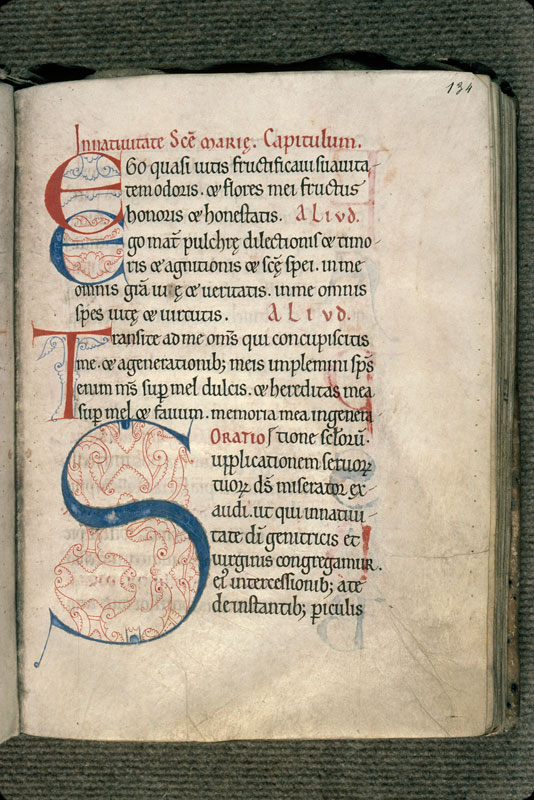 134
Innatiuitate Scẽ MARIĘ. Capitulum.
EGo quasi uitis fructificaui suauita-
tem odoris. & flores mei fructus
honoris & honestatis. ALIVD.
Ego mat̃ pulchrę dilectionis & timo-
ris & agnitionis & scę̃ spei. in me
omnis gr̃a uię & ueritatis. in me omnis
spes uitę & uirtutis. ALIVD.
Transite ad me om̃s qui concupiscitis
me. & a generationib; meis implemini sp̃s
enim m̃s sup̃ mel dulcis. & hereditas mea
sup̃ mel & fauum. memoria mea in genera
ORATIO tione sclo̧rũ.
Supplicationem seruoꝝ
tuoꝝ ds̃ miserator ex-
audi. ut qui in natiui-
tate dı̃ genitricis et
uirginis congregamur.
ei' intercessionib; a te
de instantib; ꝑiculis